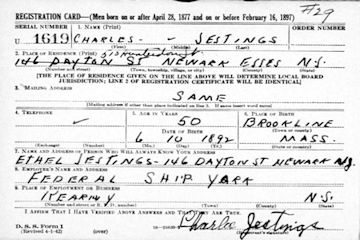 #29
REGISTRATION CARD—(Men born on or after April 28, 1877 and on or before February 16, 1897)
SERIAL NUMBER
U 1619 CHARLES - - JESTINGS
2. PLACE OF RESIDENCE (Print)
146 DAYTON ST NEWARK ESSEX N.J.
[THE PLACE OF RESIDENCE GIVEN ON THE LINE ABOVE WILL DETERMINE LOCAL BOARD JURISDICTION; LINE 2 OF REGISTRATION CERTIFICATE WILL BE IDENTICAL]
3. MAILING ADDRESS
SAME
[Mailing address if other than place indicated on line 2. If same insert word same]
4. TELEPHONE
5. AGE IN YEARS
50
6. PLACE OF BIRTH
BROOKLINE
DATE OF BIRTH
6 10 1892
MASS.
7. NAME AND ADDRESS OF PERSON WHO WILL ALWAYS KNOW YOUR ADDRESS
ETHEL JESTINGS-146 DAYTON ST NEWARK NJ.
8. EMPLOYER'S NAME AND ADDRESS
FEDERAL SHIP YARK
9. PLACE OF EMPLOYMENT OR BUSINESS
KEARNY N.J.
I AFFIRM THAT I HAVE VERIFIED ABOVE ANSWERS AND THAT THEY ARE TRUE.
D. S. S. Form 1
(Revised 4-1-42)
Charles Jestings